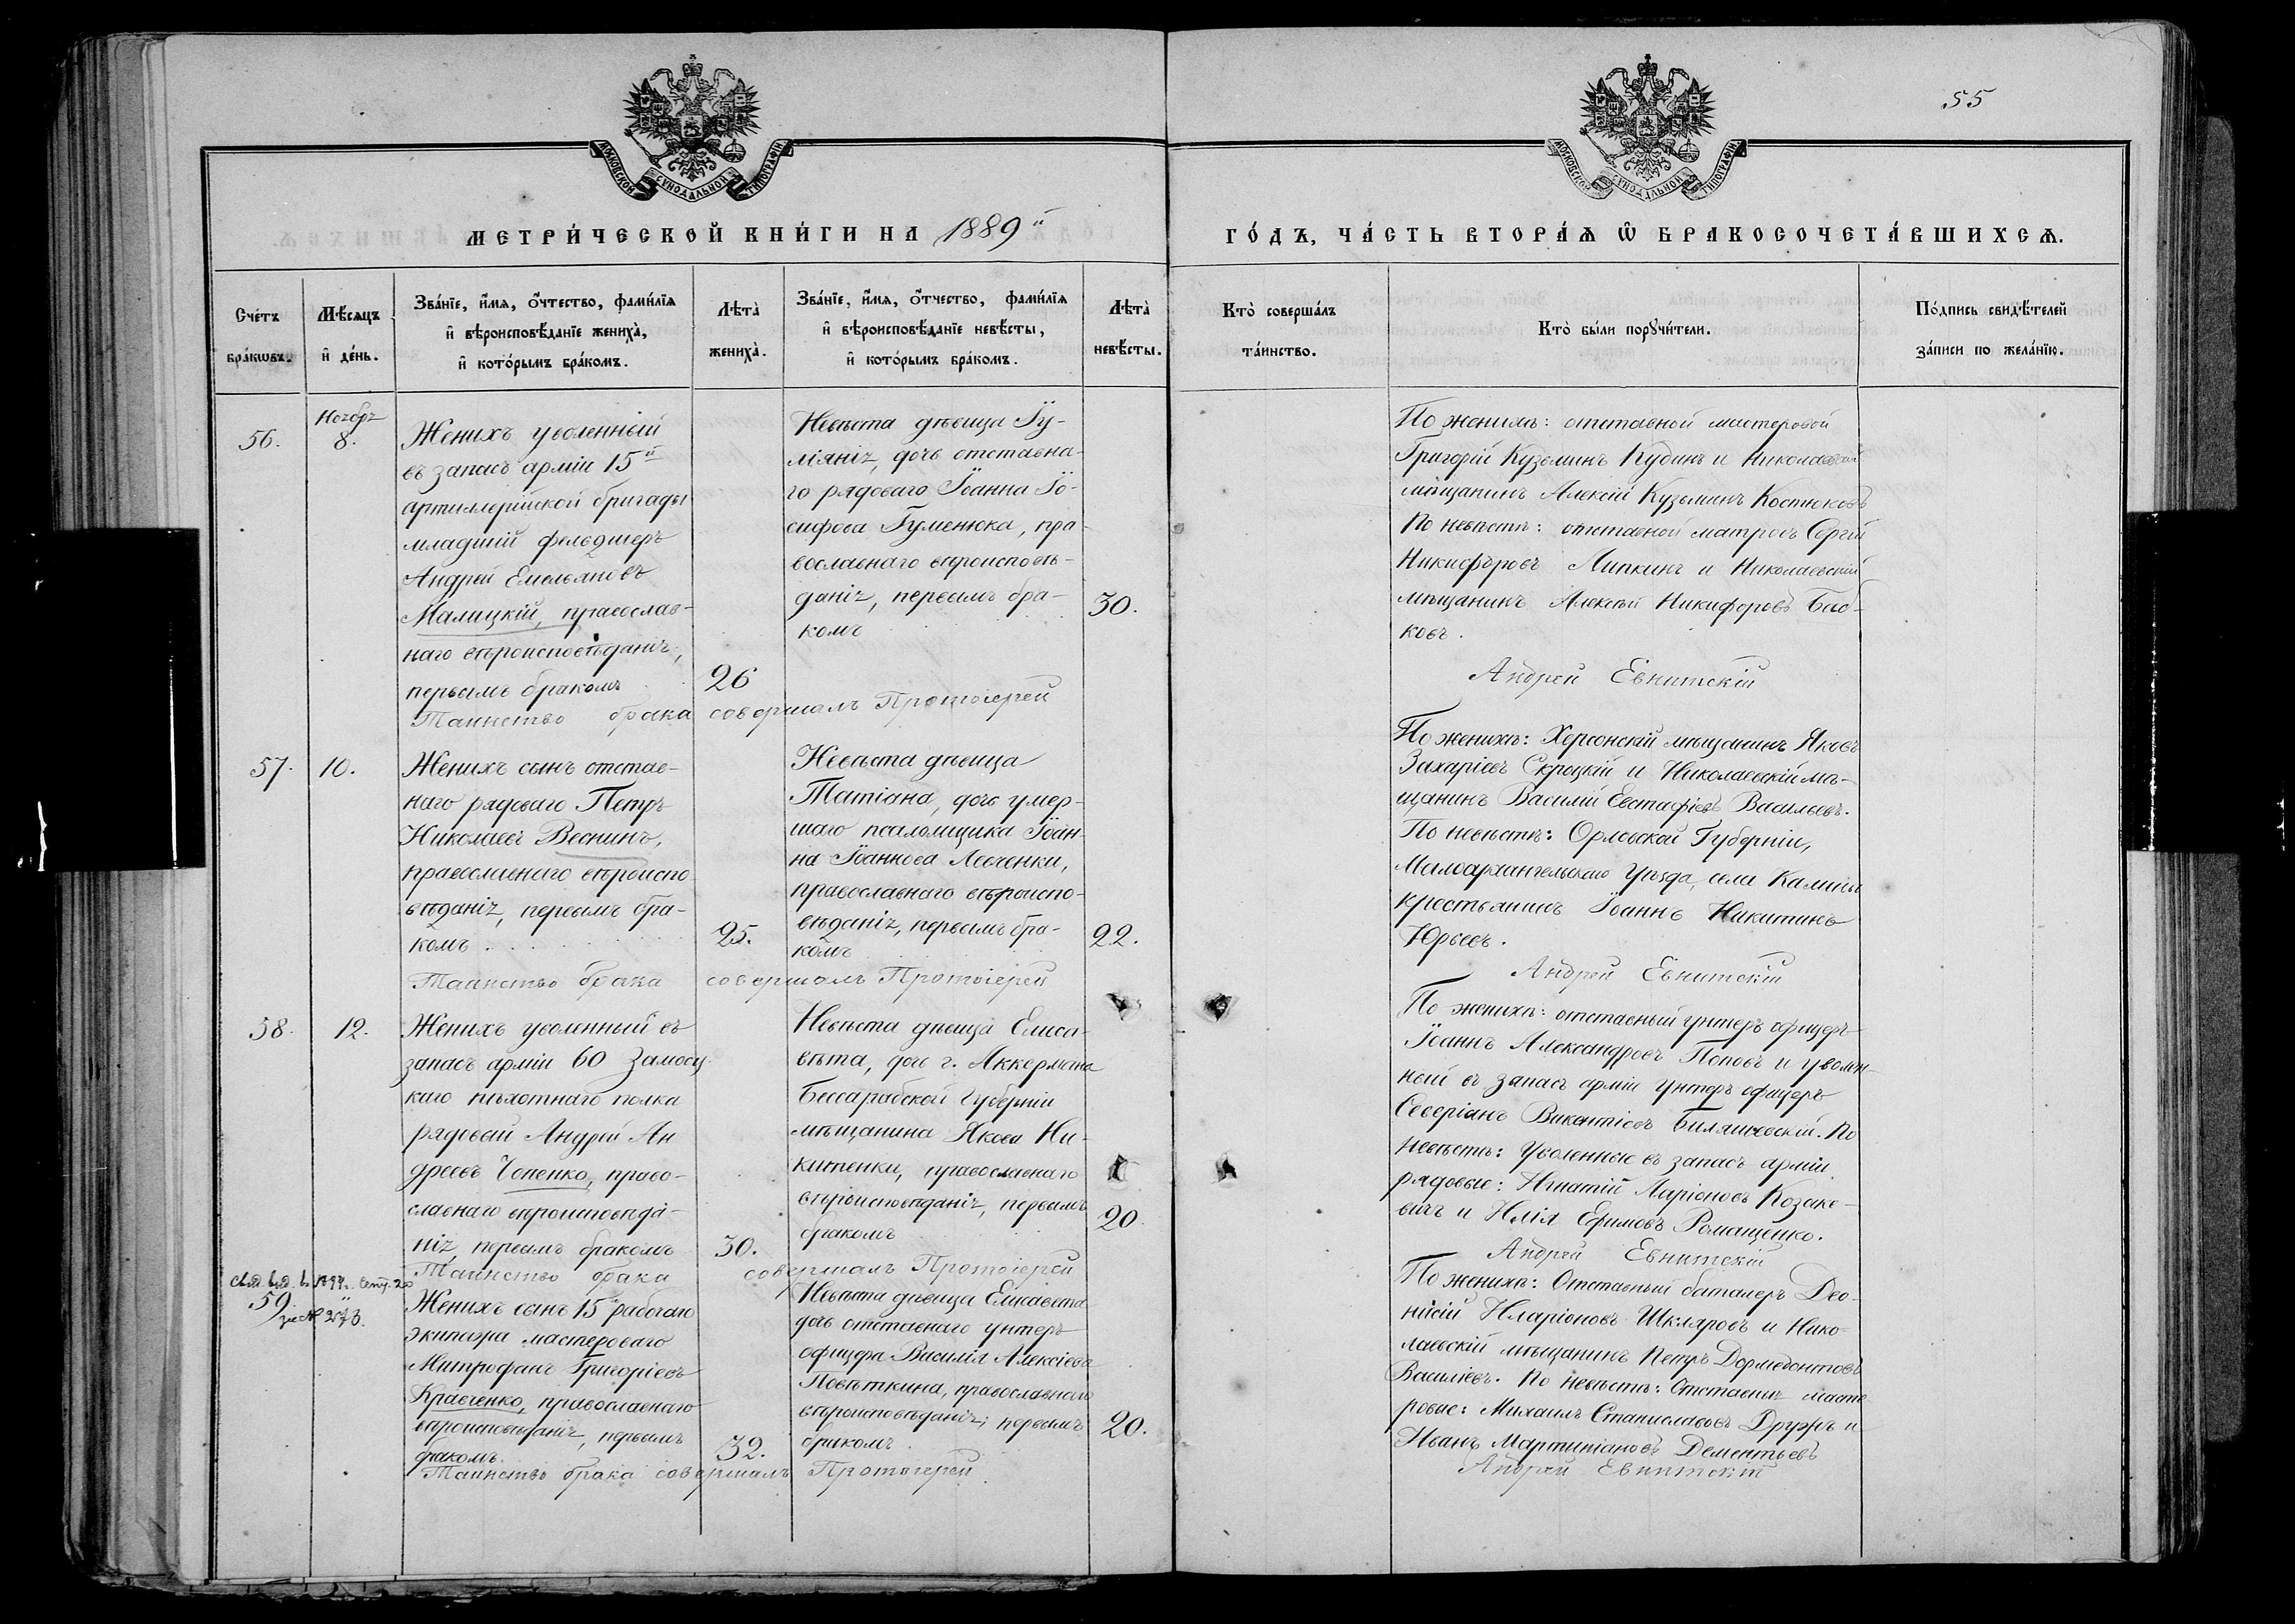 55
МОСКОВСКОЙ СѴНОДАЛЬНОЙ ТИПОГРАФІИ
МОСКОВСКОЙ СѴНОДАЛЬНОЙ ТИПОГРАФІИ
МЕТРИ́ЧЕСКОЙ КНИ́ГИ НА 1889й
ГО́ДЪ, ЧА́СТЬ ВТОРА́Ѧ Ѡ БРАКОСОЧЕТА́ВШИХСѦ.
Сче́тъ бра́кѡвъ.
Мѣ́сяцъ и҆ де́нь.
Зва́нїе, и҆́мя, ѻ҆́тчество, фами́лїя
и҆ вѣроисповѣ́данїе жениха̀,
и҆ кото́рымъ бра́комъ.
Лѣта̀ жениха̀.
Зва́нїе, и҆́мя, ѻ҆́тчество, фами́лїя
и҆ вѣроисповѣ́данїе невѣ́сты,
и҆ кото́рымъ бра́комъ.
Лѣта̀ невѣ́сты.
Кто̀ соверша́лъ та́инство.
Кто̀ бы́ли порꙋчи́тели.
По́дпись свидѣ́телей за́писи по жела́нїю.
56.
Ноября
8.
Женихъ уволенный
въ запасъ арміи 15й
артиллерійской бригады
младшій фельдшеръ
Андрей Емельяновъ
Малицкій, православ-
наго вѣроисповѣданія,
первымъ бракомъ
26
Невѣста дѣвица Іу-
ліянія, дочь отставна-
го рядоваго Іоанна Іо-
сифова Гуменюка, пра-
вославнаго вѣроисповѣ-
данія, первымъ бра-
комъ
30.
По женихѣ: отставной мастеровой
Григорій Кузьминъ Кудинъ и Николаевскій
мѣщанинъ Алексій Кузьминъ Костюковъ
По невѣстѣ: отставной матросъ Сергій
Никифоровъ Липкинъ и Николаевскій
мѣщанинъ Алексѣй Никифоровъ
ковъ.
Таинство брака совершалъ Протоіерей
Андрей Евнитскій
57.
10.
Женихъ сынъ отстав-
наго рядоваго Петръ
Николаевъ Веснинъ,
православнаго вѣроиспо
вѣданія, первымъ бра-
комъ
25.
Невѣста дѣвица
Татіана, дочь умер-
шаго псаломщика Іоан-
на Іоаннова Левченки,
православнаго вѣроиспо-
вѣданія, первымъ бра-
комъ
22.
По женихѣ: Херсонскій мѣщанинъ Яковъ
Захаріевъ Скроцкій и Николаевскій мѣ-
щанинъ Василій Евстафіевъ Васильевъ.
По невѣстѣ: Орловской Губерніи,
Малоархангельскаго Уѣзда, села
крестьянинъ Іоаннъ Никитинъ
Юрьевъ.
Таинство брака совершалъ Протоіерей
Андрей Евнитскій
58.
12.
Женихъ уволенный въ
запасъ арміи 60 Замосц-
каго пѣхотнаго полка
рядовый Андрей Ан
дреевъ Чепенко, право-
славнаго вѣроисповѣда-
нія, первымъ бракомъ
30.
Невѣста дѣвица Елиса-
вѣта, дочь г. Аккермана
Бессарабской Губерніи
мѣщанина Якова Ни-
китенки, православнаго
вѣроисповѣданія, первымъ
бракомъ
20.
По женихѣ: отставный унтеръ офицеръ
Іоаннъ Александровъ Поповъ и уволен-
ный въ запасъ арміи унтеръ офицеръ
Северіанъ Викентіевъ По
невѣстѣ: Уволенные въ запасъ арміи
рядовые: Игнатій Ларіоновъ Козаке-
вичъ и Илія Ефимовъ Романченко.
Таинство брака совершалъ Протоіерей
Андрей Евнитскій
59
за № 273.
Женихъ сынъ 15й рабочаго
экипажа мастероваго
Митрофанъ Григоріевъ
Кравченко, православнаго
вѣроисповѣданія, первымъ
бракомъ.
32.
Невѣста дѣвица Елисавета
дочь отставнаго унтеръ
офицера Василія Алексіева
Повѣткина, православнаго
вѣроисповѣданія, первымъ
бракомъ.
20.
По женихѣ: Отставный баталеръ Део-
нисій Иларіоновъ Шкляровъ и Нико-
лаевскій мѣщанинъ Петръ Дормедонтовъ
Василіевъ. По невѣстѣ: Отставные масте
ровые: Михаилъ Станиславовъ и
Иванъ Мартиніановъ Дементьевъ
Таинство брака совершалъ Протоіерей
Андрей Евнитскій